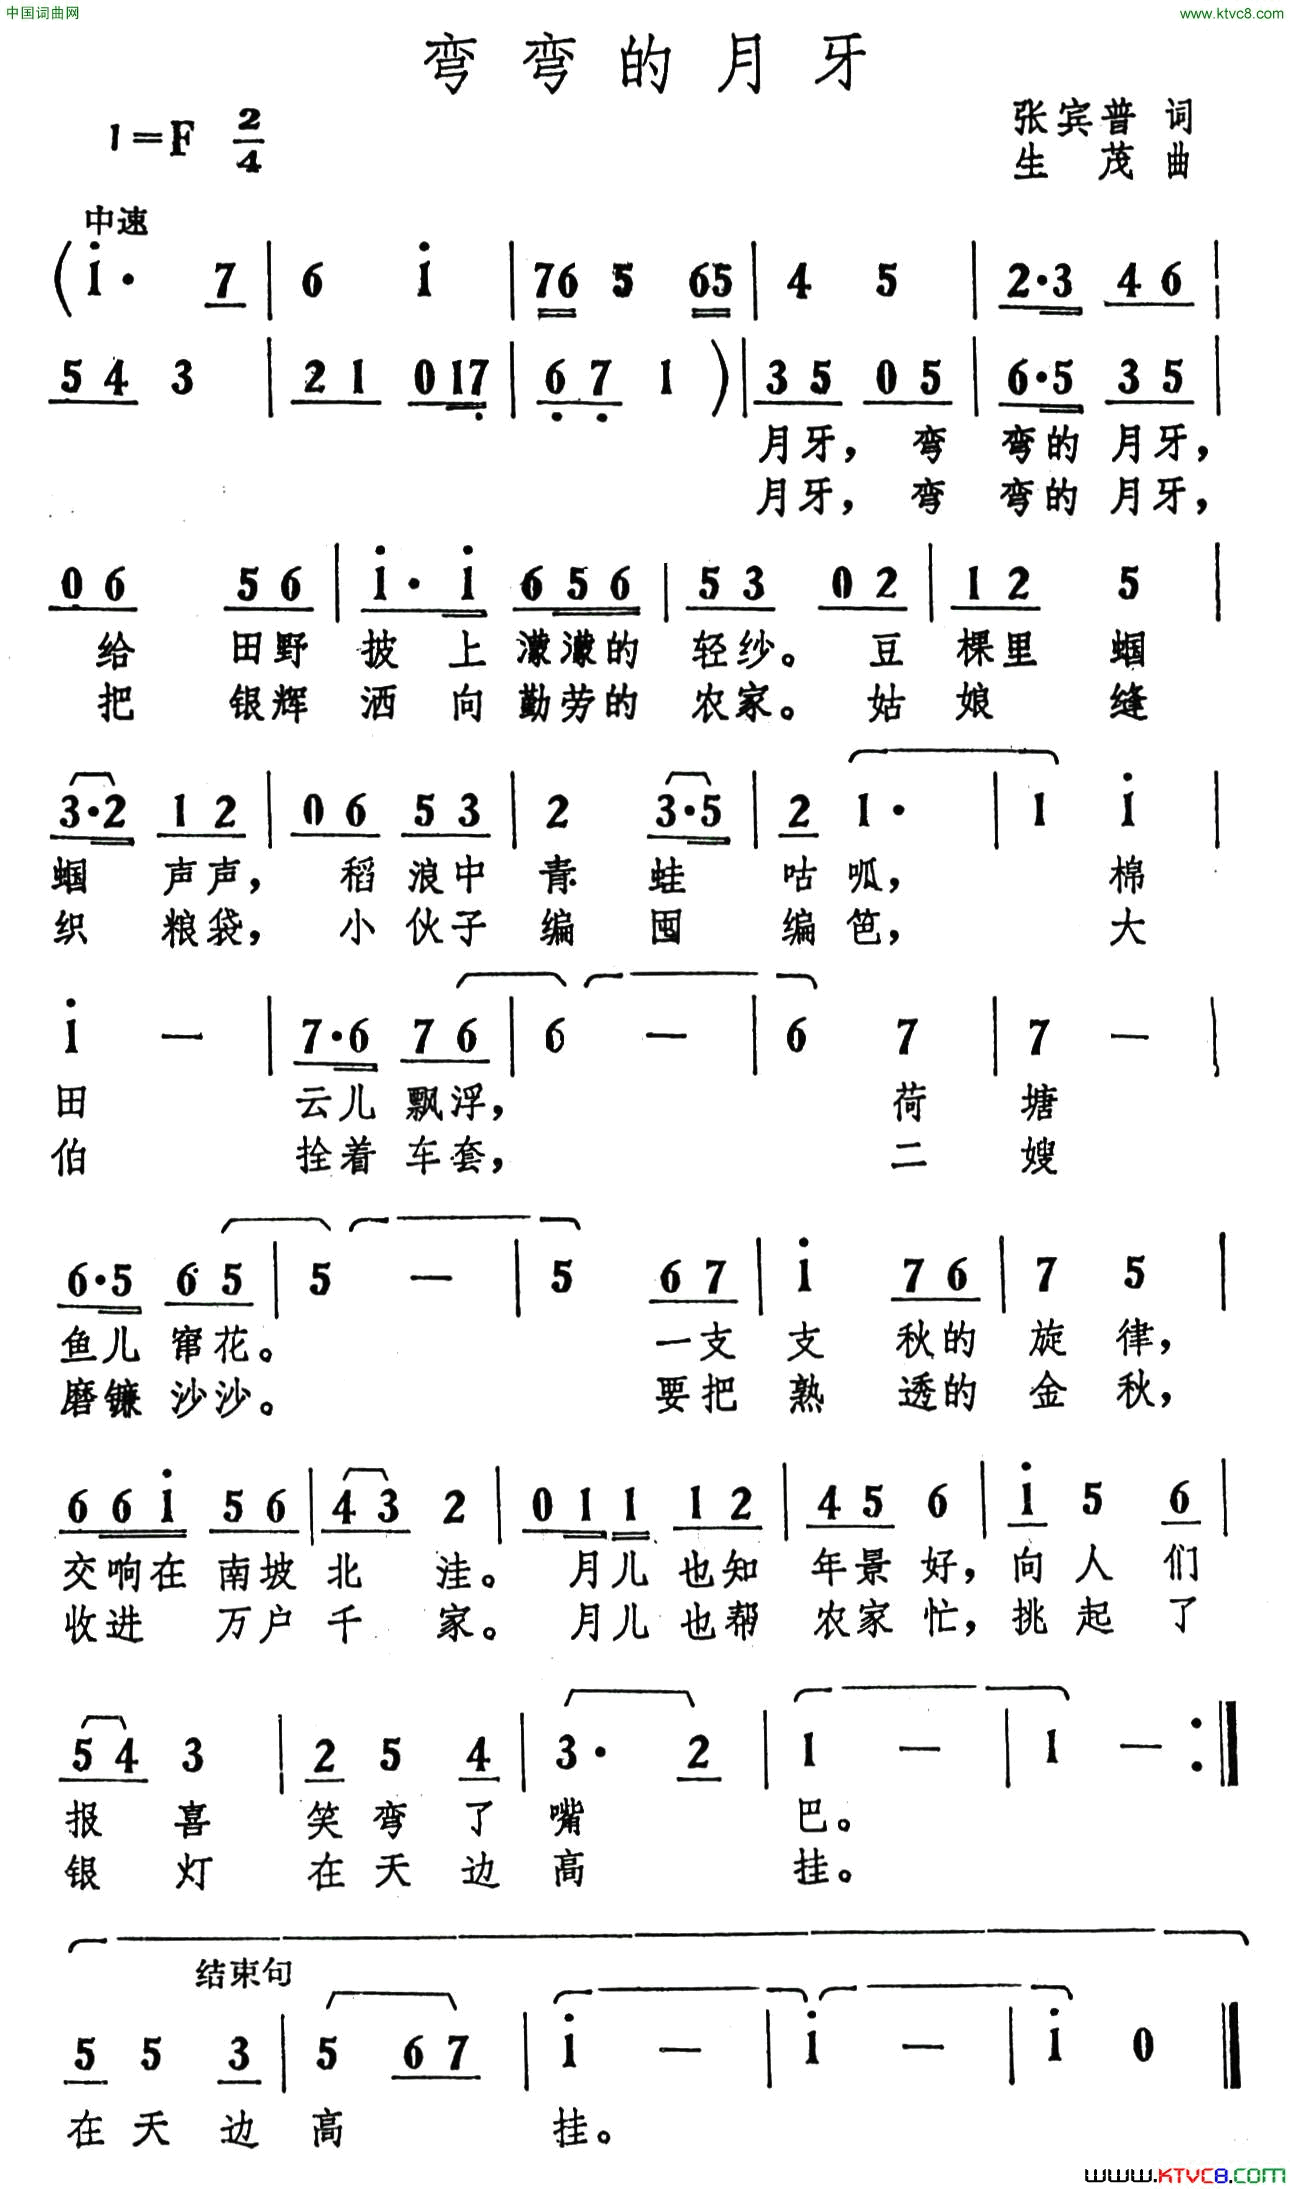 中国词曲网 www.ktvc8.com
弯弯的月牙
1=F 2/4
张宾普 词
生茂 曲
中速
(i· 7 | 6 i | 76 5 65 | 4 5 | 2·3 4 6 |
5 4 3 | 2 1 0 17 | 6 7 1 ) | 3 5 0 5 | 6·5 3 5 |
月牙，弯 弯的 月牙，
月牙，弯 弯的 月牙，
0 6 5 6 | i· i 6 5 6 | 5 3 0 2 | 1 2 5 |
给 田野 披 上 濛濛的 轻纱。 豆 棵里 蝈
把 银辉 洒 向 勤劳的 农家。 姑 娘 缝
3·2 1 2 | 0 6 5 3 | 2 3·5 | 2 1· | 1 i |
蝈 声声， 稻 浪中 青 蛙 咕 呱， 棉
织 粮袋， 小 伙子 编 囤 编 笆， 大
i — | 7·6 7 6 | 6 — | 6 7 | 7 — |
田 云儿 飘浮， 荷 塘
伯 拴着 车套， 二 嫂
6·5 6 5 | 5 — | 5 6 7 | i 7 6 | 7 5 |
鱼儿 窜花。 一支 支 秋的 旋 律，
磨镰 沙沙。 要把 熟 透的 金 秋，
6 6 i 5 6 | 4 3 2 | 0 1 1 1 2 | 4 5 6 | i 5 6 |
交响在 南坡 北 洼。 月儿 也知 年景 好， 向 人 们
收进 万户 千 家。 月儿 也帮 农家 忙， 挑 起 了
5 4 3 | 2 5 4 | 3· 2 | 1 — | 1 — :|
报 喜 笑 弯 了 嘴 巴。
银 灯 在 天 边 高 挂。
结束句
5 5 3 | 5 6 7 | i — | i — | i 0 ‖
在 天 边 高 挂。
www.KTVC8.com